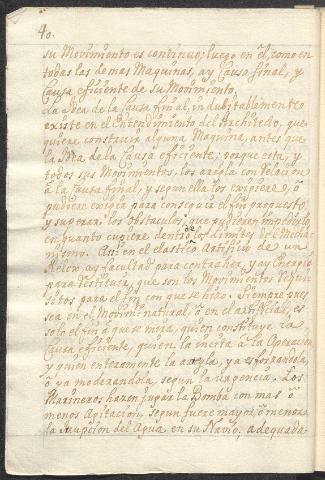 40.
su Movimiento es continuo; luego en èl, como en
todas las demas Maquinas, ay Causa final, y
Causa eficiente de su Movimiento.
La Idea de la Causa final, indubitablemente
existe en el Entendimiento del Architecto, que
quiere construir alguna Maquina, antes que
la Idea de la Causa eficiente; porque esta, y
todos sus Movimientos, los arregla con relacion
à la Causa final, y segun ella los exigiere, ò
pudiere exigir para conseguir el fin propuesto
y superar, los obstaculos, que pudieren impedirlo
en quanto cupiere dentro de los Limites del Mecha
nismo. Asi en el elastico Artificio de un
Relox, ay facultad para contraher, y ay Energia
para restituir, que son los Movimientos requi
sitos para el fin con que se hizo. Siempre pues
sea en el Movim.to natural, ò en el artificial, es
solo el fin à que se mira, quien constituye la
Causa eficiente, quien la incita à la Operacion
y quien enteramente la arregla, ya esforzandola,
ò ya moderandola, segun la urgencia. Los
Marineros hazen jugar la Bomba con mas ò
menos Agitacion, segun fuere mayor, ò menor
la irrupcion del Agua en su Navio, adequada-